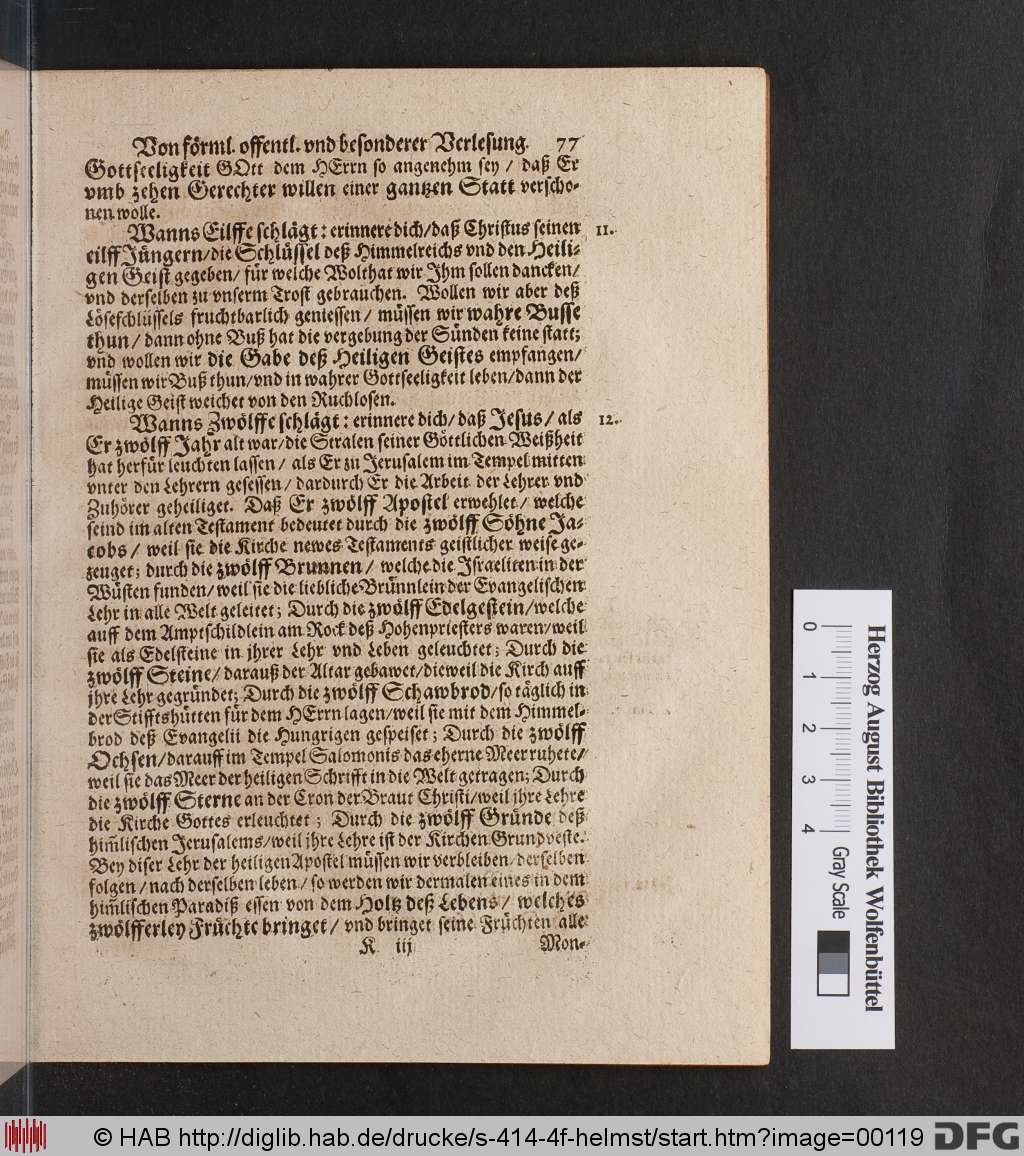 Von förml. offentl. vnd besonderer Verlesung. 77
Gottseeligkeit GOtt dem HErrn so angenehm sey / daß Er
vmb zehen Gerechter willen einer gantzen Statt verscho-
nen wolle.
Wanns Eilffe schlägt : erinnere dich / daß Christus seinen 11.
eilff Jüngern / die Schlüssel deß Himmelreichs vnd den Heili-
gen Geist gegeben / für welche Wolthat wir Jhm sollen dancken /
vnd derselben zu vnserm Trost gebrauchen. Wollen wir aber deß
Löseschlüssels fruchtbarlich geniessen / müssen wir wahre Busse
thun / dann ohne Buß hat die vergebung der Sünden keine statt;
vnd wollen wir die Gabe deß Heiligen Geistes empfangen /
müssen wir Buß thun / vnd in wahrer Gottseeligkeit leben / dann der
Heilige Geist weichet von den Ruchlosen.
Wanns Zwölffe schlägt : erinnere dich / daß Jesus / als 12.
Er zwölff Jahr alt war / die Stralen seiner Göttlichen Weißheit
hat herfür leuchten lassen / als Er zu Jerusalem im Tempel mitten
vnter den Lehrern gesessen / dardurch Er die Arbeit der Lehrer vnd
Zuhörer geheiliget. Daß Er zwölff Apostel erwehlet / welche
seind im alten Testament bedeutet durch die zwölff Söhne Ja-
cobs / weil sie die Kirche newes Testaments geistlicher weise ge-
zeuget; durch die zwölff Brunnen / welche die Jsraeliten in der
Wüsten funden / weil sie die liebliche Brünnlein der Evangelischen
Lehr in alle Welt geleitet; Durch die zwölff Edelgestein / welche
auff dem Amptschildlein am Rock deß Hohenpriesters waren / weil
sie als Edelsteine in jhrer Lehr vnd Leben geleuchtet; Durch die
zwölff Steine / darauß der Altar gebawet / dieweil die Kirch auff
jhre Lehr gegründet; Durch die zwölff Schawbrod / so täglich in
der Stifftshütten für dem HErrn lagen / weil sie mit dem Himmel-
brod deß Evangelii die Hungrigen gespeiset; Durch die zwölff
Ochsen / darauff im Tempel Salomonis das eherne Meer ruhete /
weil sie das Meer der heiligen Schrifft in die Welt getragen; Durch
die zwölff Sterne an der Cron der Braut Christi / weil jhre Lehre
die Kirche Gottes erleuchtet ; Durch die zwölff Gründe deß
him̃lischen Jerusalems / weil jhre Lehre ist der Kirchen Grundveste.
Bey diser Lehr der heiligen Apostel müssen wir verbleiben / derselben
folgen / nach derselben leben / so werden wir dermalen eines in dem
him̃lischen Paradiß essen von dem Holtz deß Lebens / welches
zwölfferley Früchte bringet / vnd bringet seine Früchten alle
K iij Mon-
0 1 2 3 4
Gray Scale
Herzog August Bibliothek Wolfenbüttel
© HAB http://diglib.hab.de/drucke/s-414-4f-helmst/start.htm?image=00119 DFG